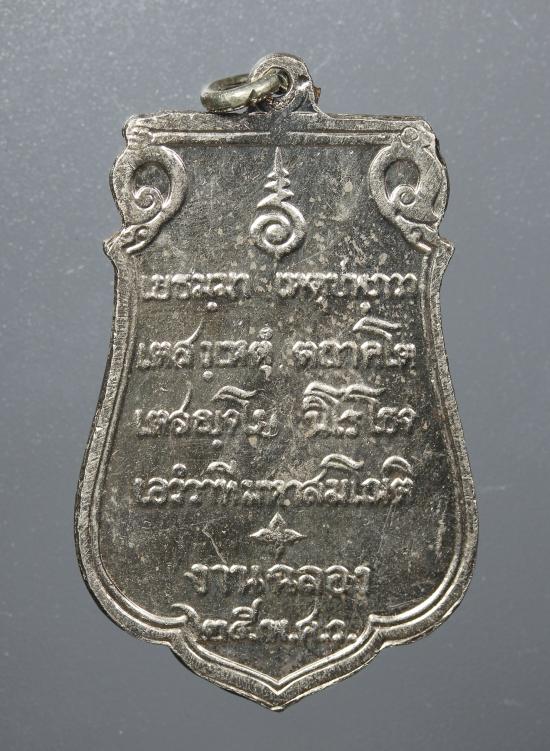 เยธมฺมา เหตุปฺปภวา
เตสํ เหตุํ ตถาคโต
เตสญฺจโย นิโรโธจ
เอวํวาทีมหาสมโณติ
งานฉลอง
๒๕ พ.ศ.ว.